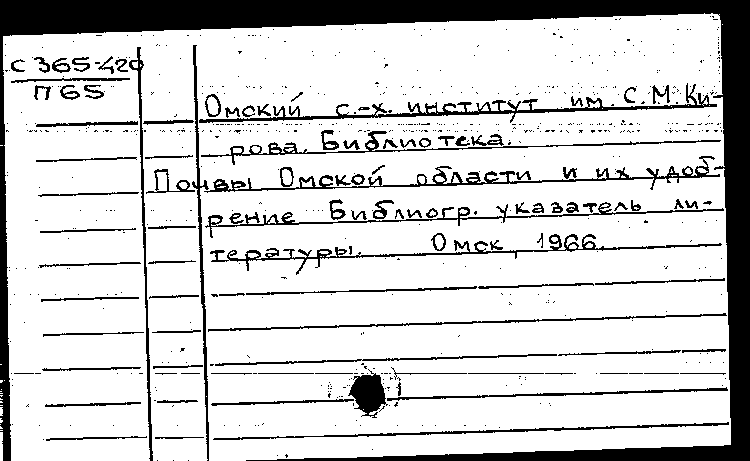 С 365-420
П 65
Омский с.-х. институт им. С.М. Ки-
рова. Библиотека.
Почвы Омской области и их удоб-
рение Библиогр. указатель ли-
тературы. Омск, 1966.